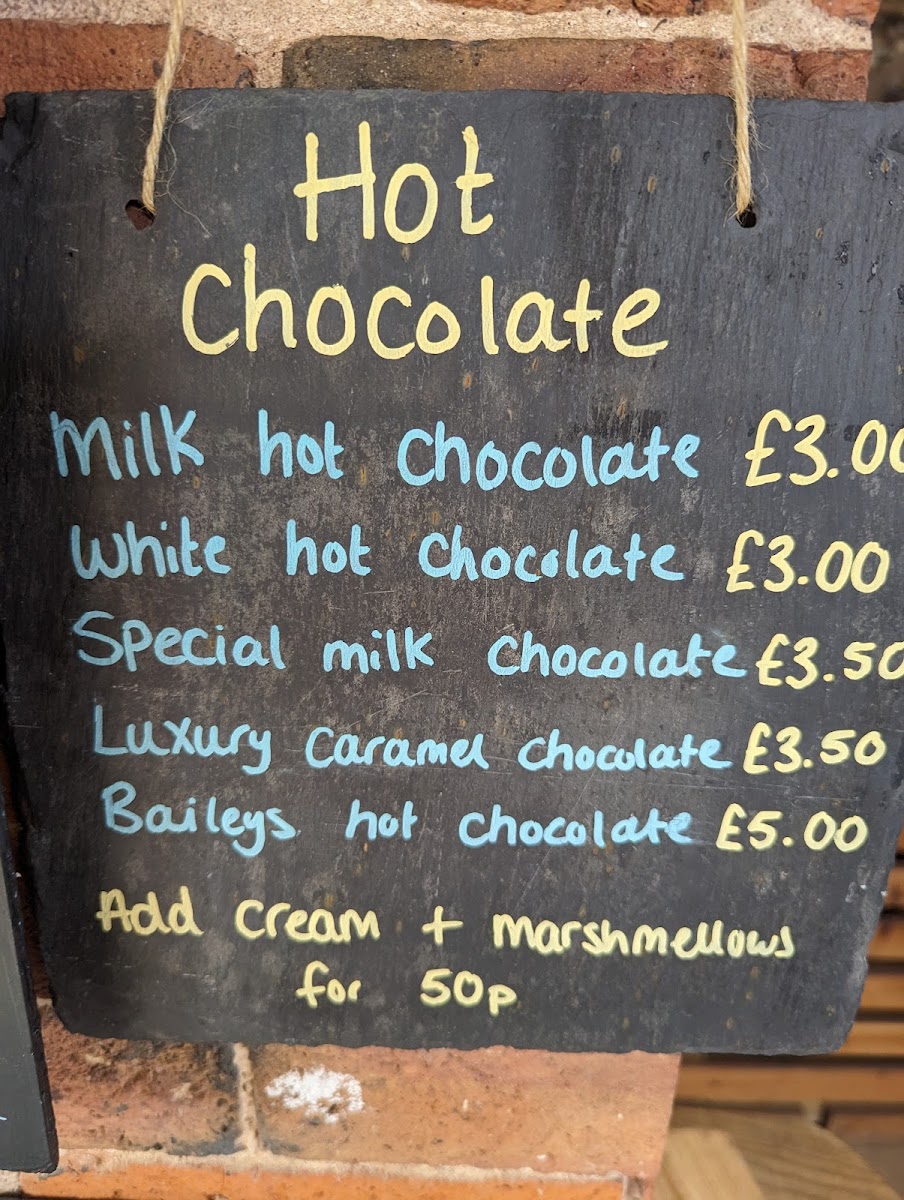 Hot
Chocolate
Milk hot chocolate £3.00
White hot chocolate £3.00
Special milk chocolate £3.50
Luxury caramel chocolate £3.50
Baileys hot chocolate £5.00
Add cream + marshmellows
for 50p